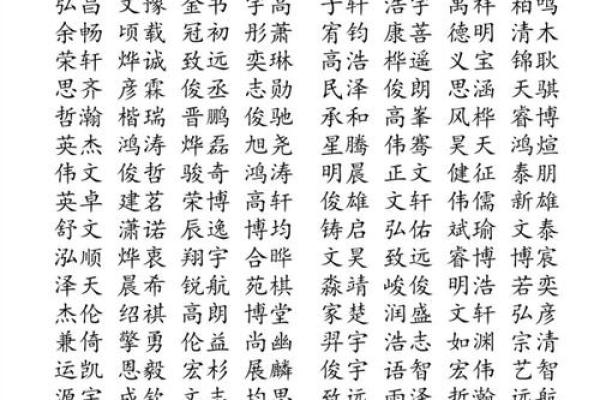 弘昌 文豫 金书 宇高 子轩 浩宇 禹祥 柏鸣
余畅 顷载 冠初 彤萧 宥钧 康善 德明 清木
荣轩 烨诚 致远 奕琳 高浩 桦遥 义宝 锦耿
思齐 彦霖 俊丞 志勋 民泽 俊朗 思涵 天骐
哲瀚 楷瑞 晋鹏 俊驰 承和 高峯 风桦 睿博
英杰 鸿涛 烨磊 旭尧 星腾 伟骞 昊天 鸿煊
伟文 俊哲 骏奇 鸿涛 明晨 正文 健征 泰朋
英卓 建茗 荣博 高轩 俊雄 文轩 伟儒 新雄
舒文 潇诺 辰逸 博均 铸启 弘佑 斌瑜 文泰
泓顺 烨衷 翔宇 合晔 文昊 致远 睿博 博宸
泽天 晨希 锐航 苑棋 淼靖 峻俊 明浩 若奕
杰伦 绍祺 高朗 博堂 家楚 润盛 文轩 弘彦
兼倚 擎勇 伦益 尚幽 羿宇 浩志 如渊 宗清
运凯 恩毅 宏杉 展麟 俊宇 语智 宏伟 艺智
源宇 成钦 文志 均思 致远 雨泽 哲瀚 远航